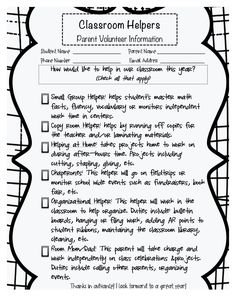 Classroom Helpers
Parent Volunteer Information
Student Name Parent Name
Phone Number Email Address
How would like to help in our classroom this year?
(Check all that apply)
Small Group Helper: helps students master math
facts, fluency, vocabulary or monitors independent
work time in centers.
Copy Room Helper: helps by running off copies for
the teacher and/or laminating materials.
Helping at Home: takes projects home to work on
during after-hours time. Projects including
cutting, stapling, glueing, etc.
Chaperones: This helper will go on fieldtrips or
monitor school wide events such as fundraisers, book
fair, etc.
Organizational Helper: This helper will work in the
classroom to help organize. Duties include bulletin
boards, hanging or filing work, adding AR points to
student ribbons, maintaining the classroom library,
cleaning, etc.
Room Mom/Dad: This parent will take charge and
work independently on class celebrations & projects.
Duties include calling other parents, organizing
events.
Thanks in advance! I look forward to a great year!